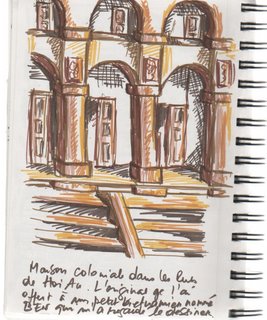 Maison coloniale dans les rues
de Hoi An. L'original je l'ai
offert à un petit vietnamien nommé
BEN qui m'a regardé le dessiner.